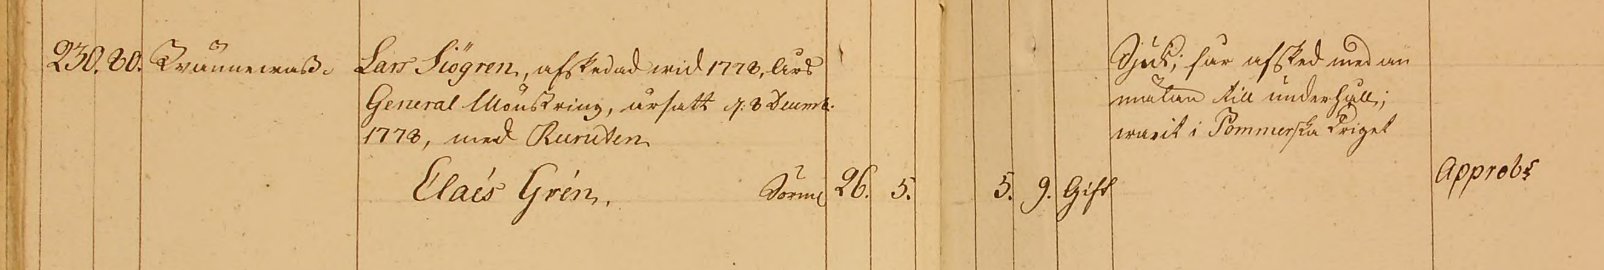 230. 80. Lars Siögren, afskedad wid 1778, års
General Mönstring, ersatt d: 8 Decemb.
1778, med Recruten
Claës Grén. 26. 5. 5. 9. Gift
Sjuk; får afsked med an
mälan till underhåll;
warit i Pommerska Kriget
Approb:s